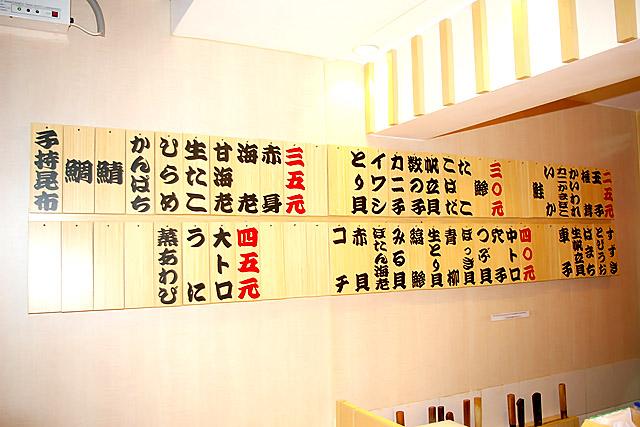 二五元
玉子
椎茸
かいわれ
カニかまぼこ
いか
鮭
三〇元
たこ
こはだ
鯵
帆立貝
数の子
カニ子
イワシ
とり貝
三五元
赤身
海老
甘海老
生たこ
ひらめ
かんぱち
鯖
鯛
子持昆布
すずき
とりうお
はまち
生帆立貝
車子
四〇元
中トロ
穴子
つぶ貝
ほっき貝
青柳
生とり貝
縞鯵
みる貝
ぼたん海老
赤貝
コチ
四五元
大トロ
うに
蒸あわび